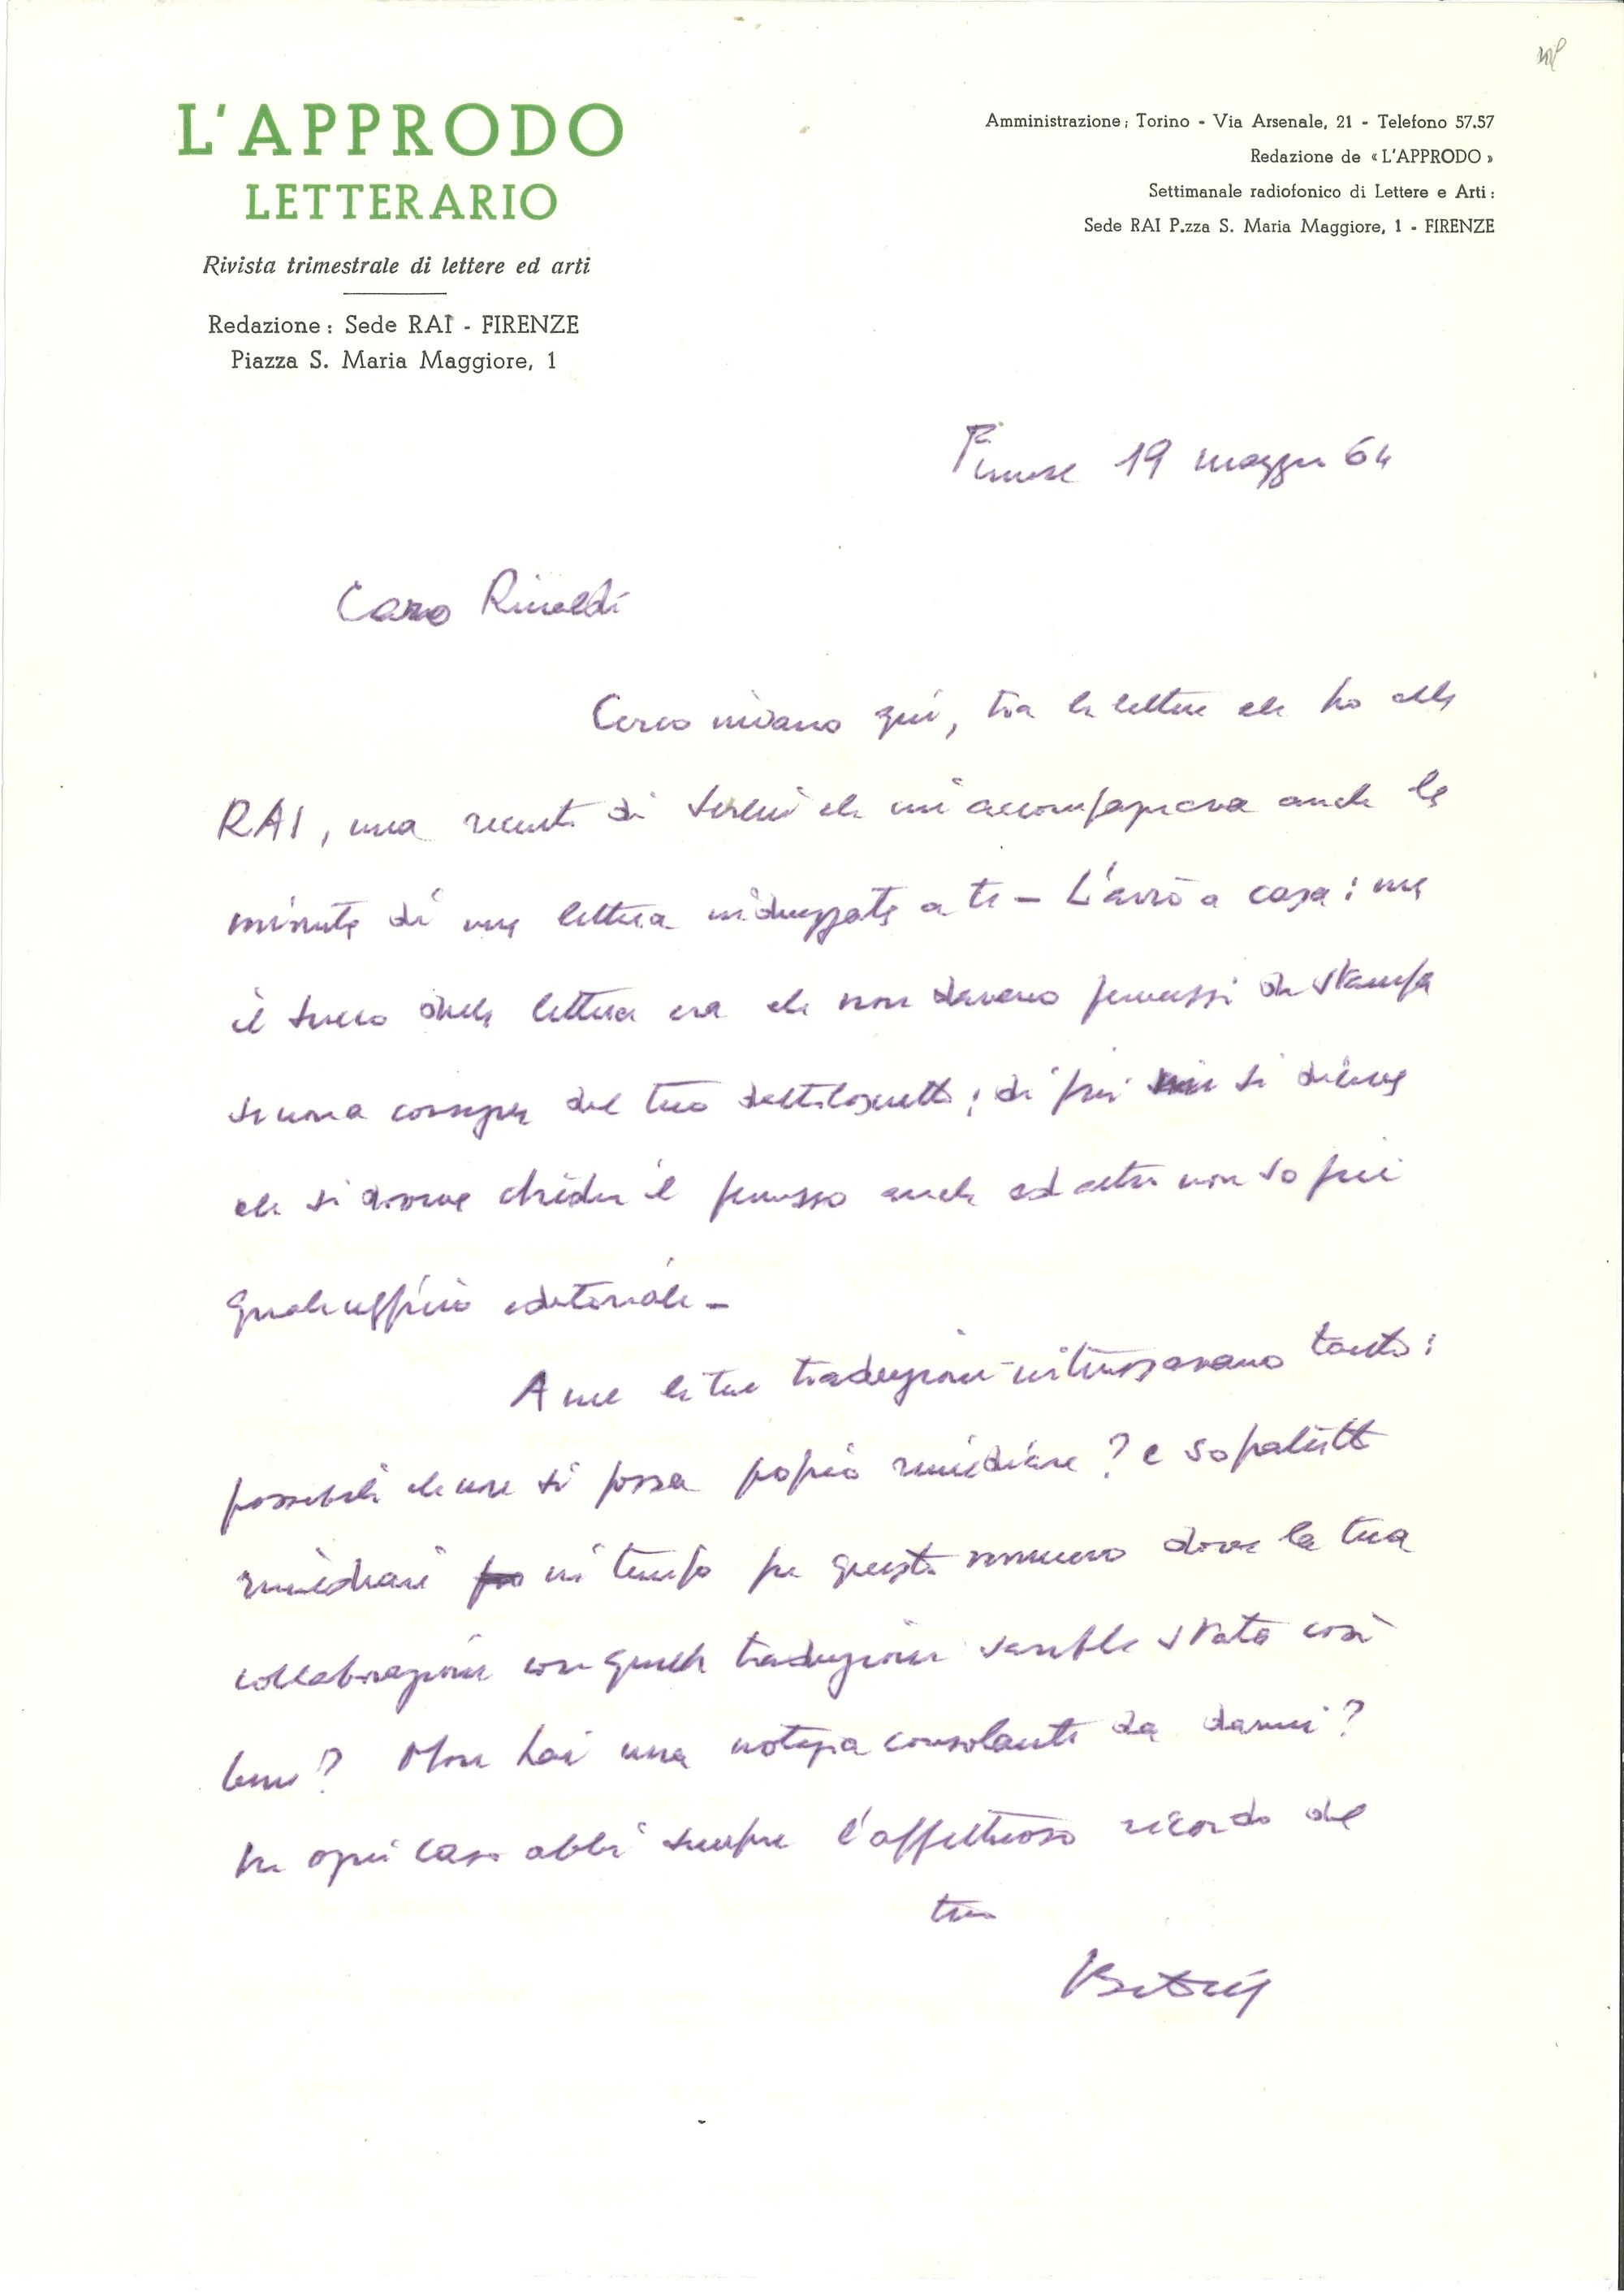 L'APPRODO
LETTERARIO
Rivista trimestrale di lettere ed arti
Redazione: Sede RAI - FIRENZE
Piazza S. Maria Maggiore, 1
Amministrazione: Torino - Via Arsenale, 21 - Telefono 57.57
Redazione de «L'APPRODO»
Settimanale radiofonico di Lettere e Arti:
Sede RAI P.zza S. Maria Maggiore, 1 - FIRENZE
Firenze 19 maggio 64
Caro Rinaldi
Cerco invano qui, tra le lettere che ho alla
RAI, una recente di Sereni che mi accompagnava anche la
minuta di una lettera indirizzata a te - L'avrò a casa: ma
il succo della lettera era che non davano permessi di stampa
se non a consegna del tuo dattiloscritto; di più si diceva
che si doveva chieder il permesso anche ad altri non so più
quale ufficio editoriale -
A me le tue traduzioni interessavano tanto:
possibile che non si possa proprio rimediare? e soprattutto
rimediare in tempo per questo numero dove la tua
collaborazione con quelle traduzioni sarebbe stata così
bene? Non hai una notizia consolante da darmi?
In ogni caso abbi sempre l'affettuoso ricordo del
tuo
Betocchi